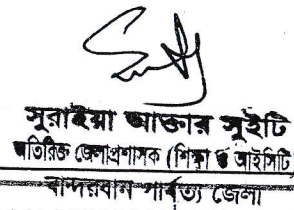 সুরাইয়া আক্তার সুইটি
অতিরিক্ত জেলাপ্রশাসক (শিক্ষা ও আইসিটি
বান্দরবান পার্বত্য জেলা